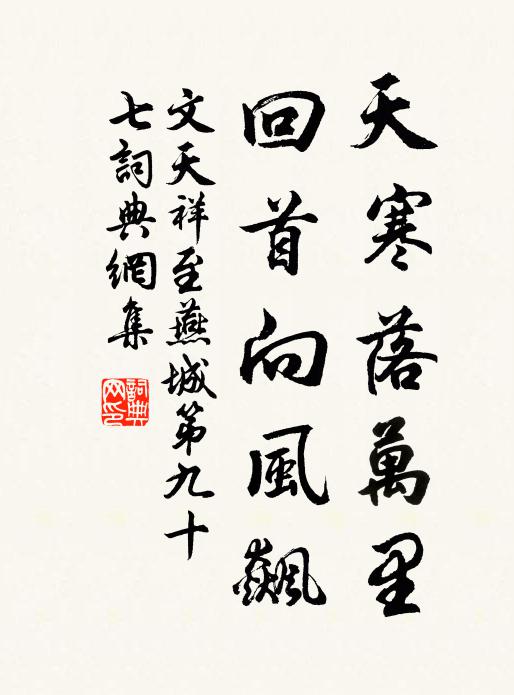 天寒落萬里
回首向風飆
文天祥至燕城第九十
七詞典網集
詞典
网印